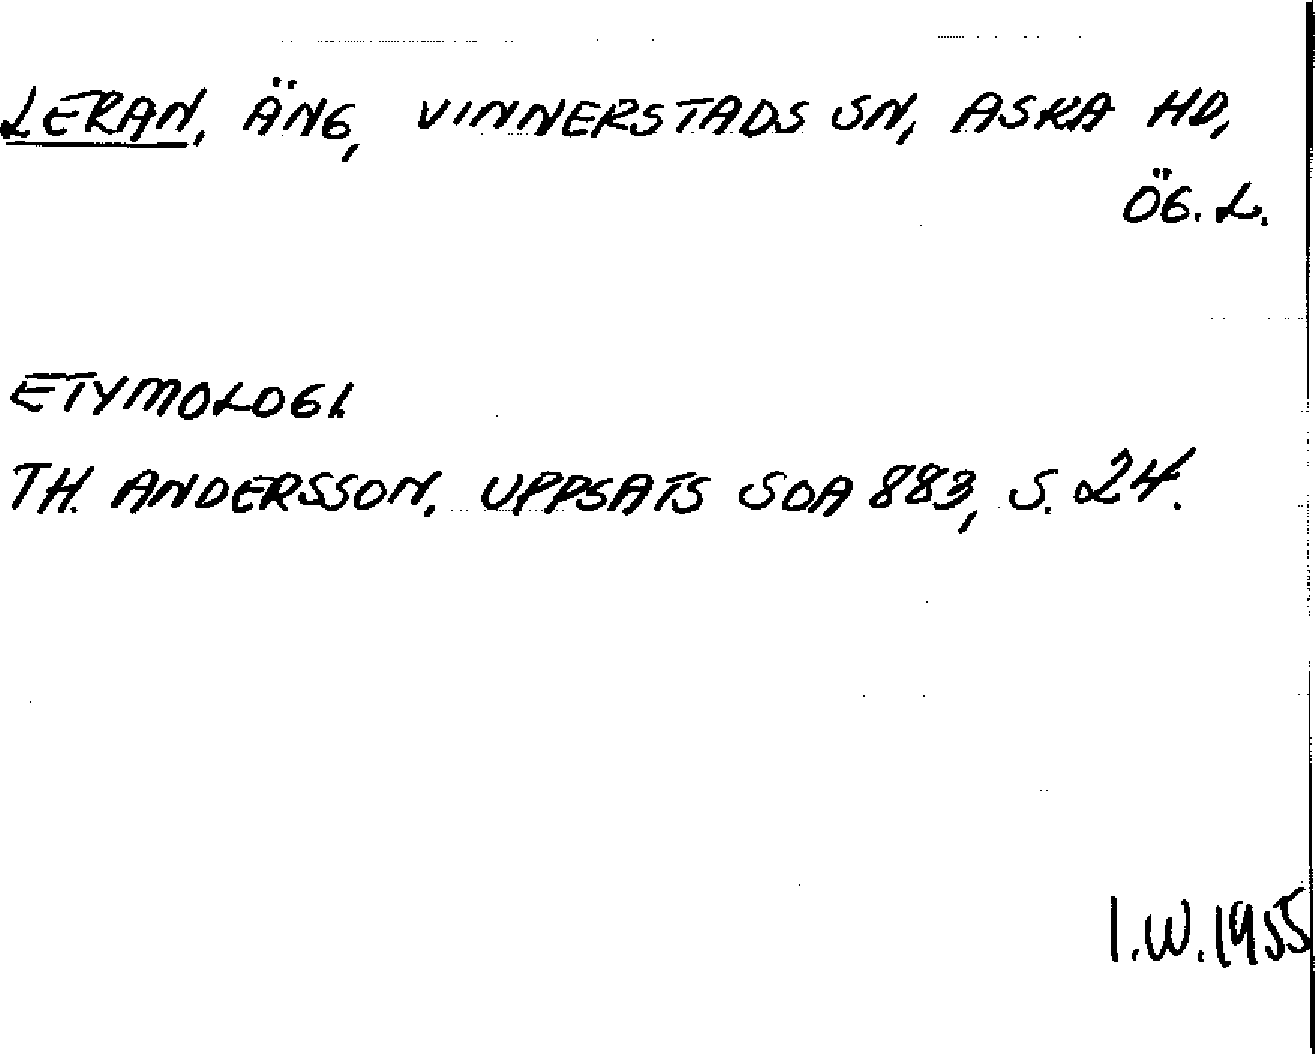 LERAN, ÄNG, VINNERSTADS SN, ASKA HD,
ÖG. L.
ETYMOLOGI.
TH. ANDERSSON, UPPSATS SOA 883, S. 24.
I.W. 1955